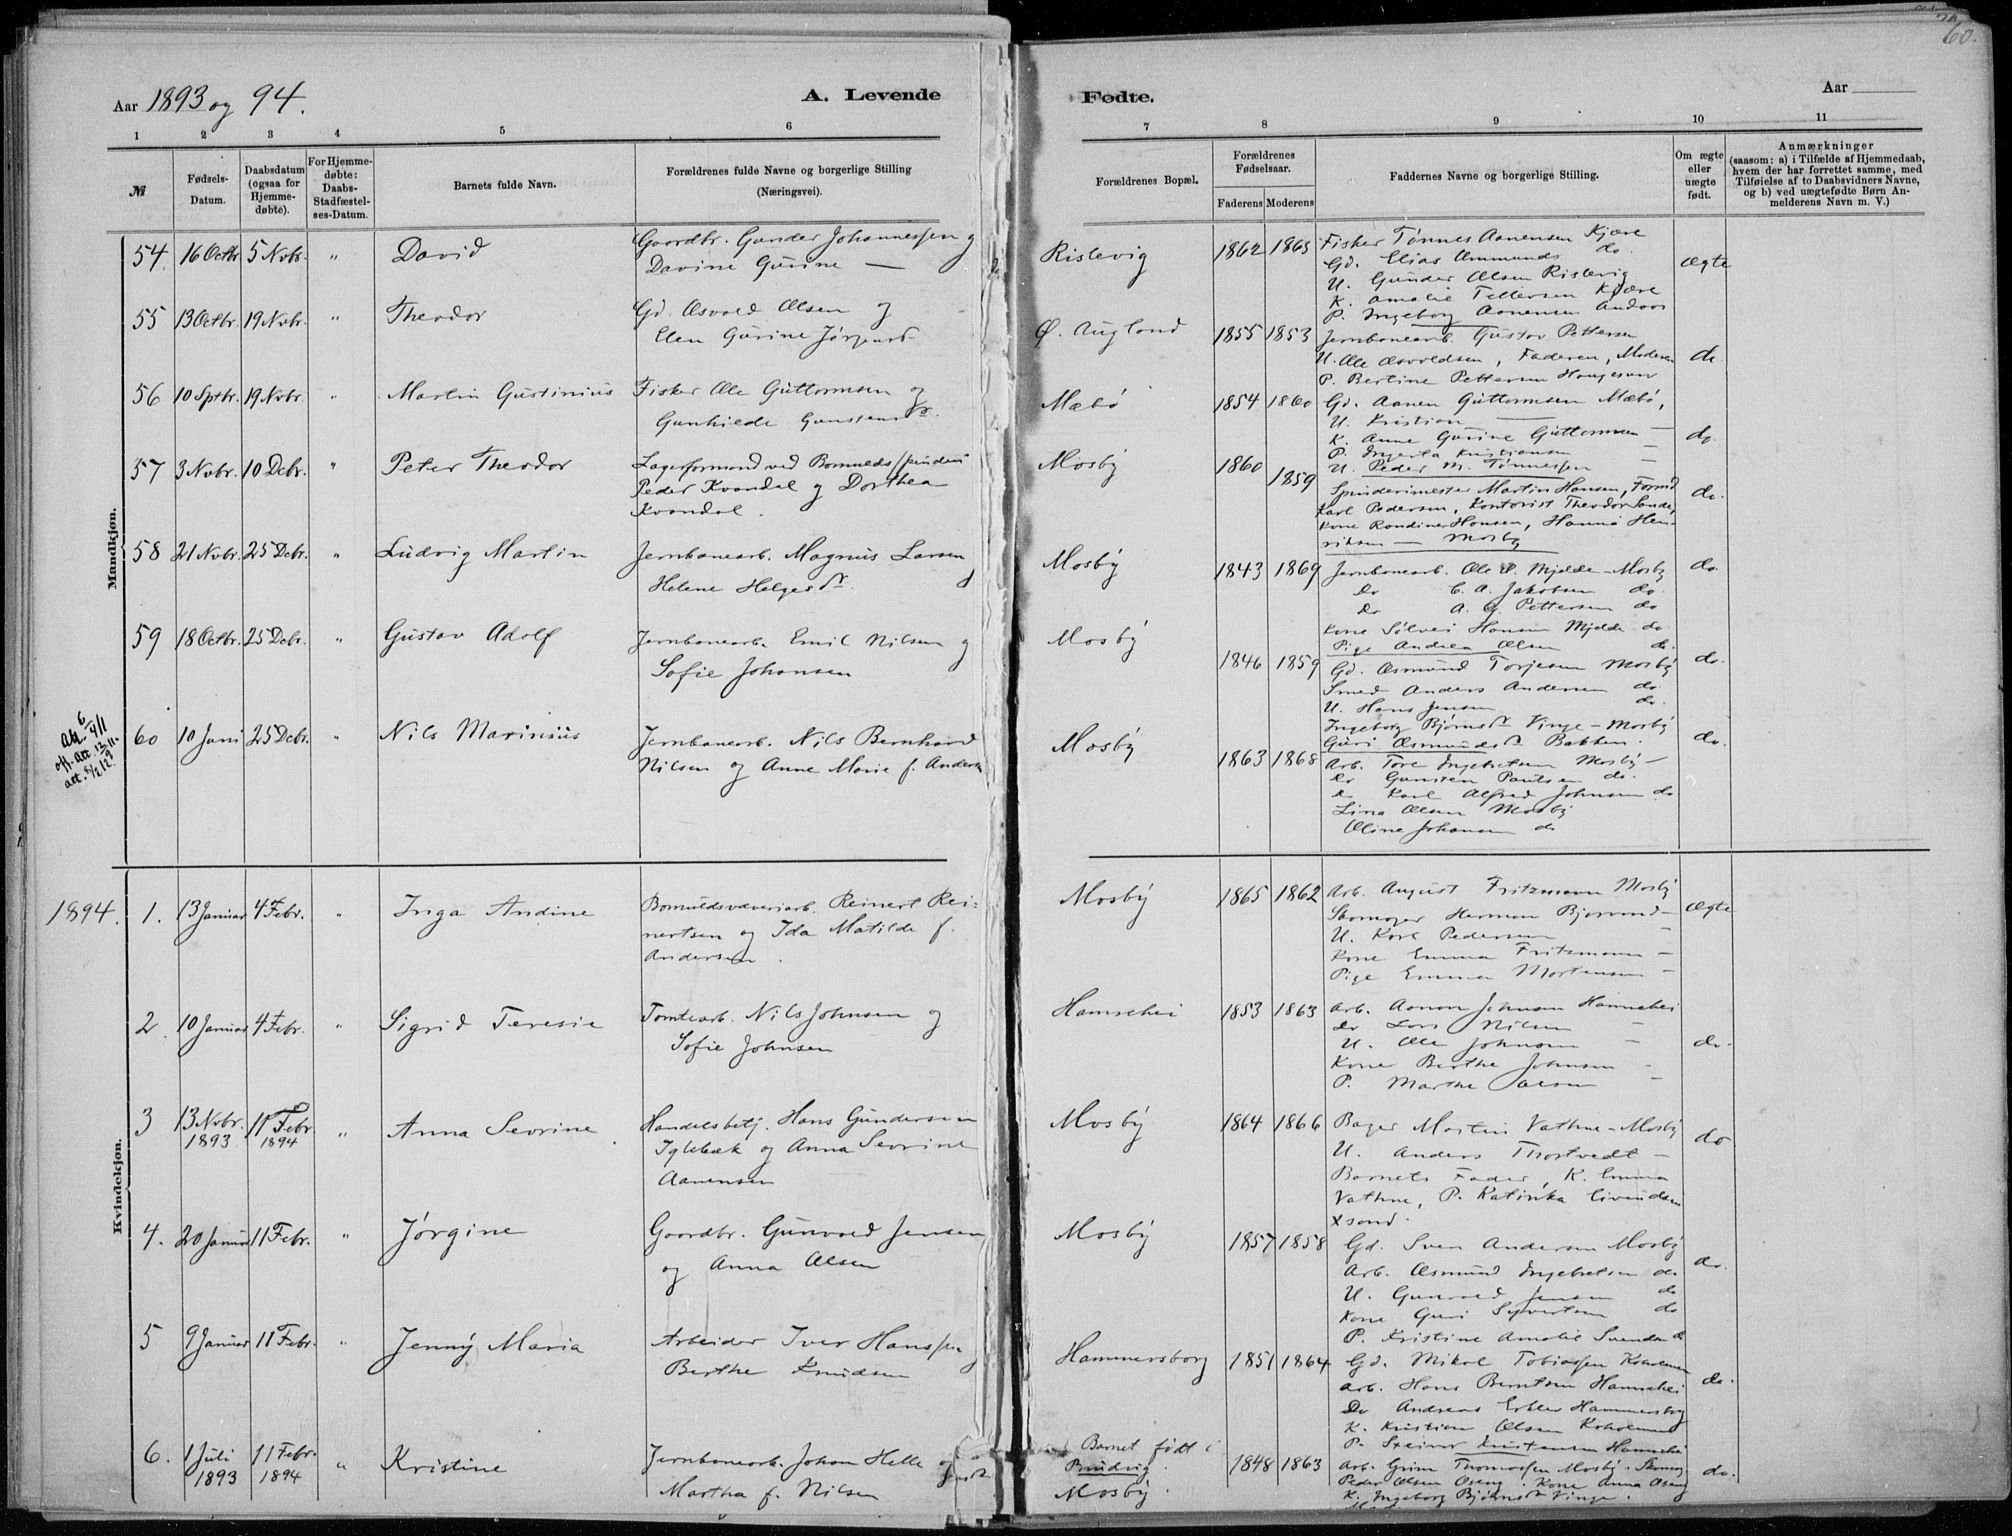 60.
Aar 1893 og 94.
A. Levende
Fødte.
Aar
1 2 3 4 5 6 7 8 9 10 11
№
Fødsels-Datum.
Daabsdatum (ogsaa for Hjemme-døbte).
For Hjemme-døbte: Daabs-Stadfæstel-ses-Datum.
Barnets fulde Navn.
Forældrenes fulde Navne og borgerlige Stilling
(Næringsvei).
Forældrenes Bopæl.
Forældrenes Fødselsaar.
Faderens Moderens
Faddernes Navne og borgerlige Stilling.
Om ægte eller uægte født.
Anmærkninger
(saasom: a) i Tilfælde af Hjemmedaab,
hvem der har forrettet samme, med
Tilføielse af to Daabsvidners Navne,
og b) ved uægtefødte Børn An-
melderens Navn m. V.)
Mandkjøn.
54. 16 Octbr. 5 Nvbr. " David
Gaardbr. Gunder Johannessen og
Davine Gurine —
Rislevig 1862 1865
Fisker Tønnes Aanensen Kjære
Gd. Elias Ommunds do.
U. Gunder Olsen Rislevig
K. Amalie Tellefsen Kjære
P. Ingeborg Aanensen Andaas
ægte
55 13 Octbr. 19 Nvbr. " Theodor
Gd. Osvold Olsen og
Elen Gurine Jørgensd
Ø. Augland 1855 1853
Jernbanearb. Gustav Pettersen
U. Ole Osvoldsen, Faderen, Moderen
P. Bertine Pettersen Haugesund
do
56 10 Sptbr. 19 Nvbr. " Martin Gustinius
Fisker Ole Guttormsen og
Gunhilde Gunstensdr.
Mæbø 1854 1860
Gd. Aanen Guttormsen Mæbø,
U. Kristian —
K. Anne Gurine Guttormsen —
P. Ingerta Kristiansen —
U. Peder M. Tønnessen
do.
57 3 Nvbr. 10 Debr. " Peter Theodor
Lagerformand ved Bomuldsspinderi
Peder Kvandal og Dorthea
Kvandal.
Mosby 1860 1859
Spinderimester Martin Hansen, Formd
Karl Pedersen, Kontorist Theodor Sande,
Kone Rondine Hansen, Hanna Hen-
riksen — Mosby
do.
58 21 Nvbr. 25 Debr. " Ludvig Martin
Jernbanearb. Magnus Larsen
Helene Helgesdr. og
Mosby 1843 1869
Jernbanearb. Ole P. Mjelde — Mosby
Do C. A. Jakobsen do.
Do A. G. Pettersen do
Kone Sølvei Hansen Mjelde do.
Pige Andrea Olsen do.
do.
59 18 Octbr. 25 Debr. " Gustav Adolf
Jernbanearb. Emil Nilsen og
Sofie Johansen
Mosby 1846 1859
Gd. Osmund Torjesen Mosby
Smed Anders Andersen do
U. Hans Jensen do.
Ingeborg Bjørnsdr. Vinge — Mosby
Guri Osmundsdr. Bakken.
do.
60 10 Juni 25 Debr. " Nils Marinius
Jernbanearb. Nils Bernhard
Nilsen og Anne Marie f. Anders
Mosby 1863 1868
Arb. Tore Ingebretsen Mosby —
Do Gunsten Paulsen do.
Do Karl Alfred Johnsen do
Lina Olsen Mosby
Oline Johansen do
do.
1894.
Kvindekjøn.
1. 13 Januar 4 Febr. " Inga Andine
Bomuldsvæveriarb. Reinert Rei-
nertsen og Ida Matilde f.
Andersen.
Mosby 1865 1862
Arb. August Fritzmann Mosby
Skomager Herman Bjorvand —
U. Karl Pedersen —
Kone Emma Fritzmann —
Pige Emma Mortensen —
ægte
2. 10 Januar 4 Febr. " Sigrid Teresie
Tomtearb. Nils Johnsen og
Sofie Johnsen
Hamrehei 1853 1863
Arb. Aanon Johnsen Hamrehei
Do Lars Nilsen —
U. Ole Johnsen —
Kone Berthe Johnsen —
P. Marthe Olsen —
do.
3 13 Nvbr. 1893 11 Febr. 1894 " Anna Sevrine.
Handelsbetj. Hans Gundersen
Iglebæk og Anna Sevrine
Aanensen
Mosby 1864 1866
Bager Martin Vathne — Mosby
U. Anders Thortvedt —
Barnets Fader, K. Emma
Vathne, P. Katinka Eivindsen
Xsand.
do
4. 20 Januar 11 Febr. " Jørgine
Gaardbr. Gunvald Jensen
og Anna Olsen
Mosby 1857 1858
Gd. Sven Andersen Mosby
Arb. Osmund Ingebretsen do
U. Gunvald Jensen do
Kone Guri Syvertsen do
P. Kristine Amalie Svendsen do
do.
5 9 Januar 11 Febr. " Jenny Maria
Arbeider Iver Hanssen og
Berthe Knudsen
Hammersborg 1851 1864
Gd. Mikal Tobiassen
Arb. Hans Berntsen Hamrehei
Do Andreas Hammersborg
K. Kristiane Olsen
P. Kristensen Hamrehei
do.
6. 1 Juli 1893 11 Febr. 1894 " Kristine
Jernbanearb. Johan Helle og
Martha f. Nilsen
Barnet født i
Mosby. 1848 1863
Arb. Grim Thomassen Mosby.
Peder Olsen Oseng. Kone Anna Oseng
K. Ingeborg Bjørnsdr Vinge.
do.